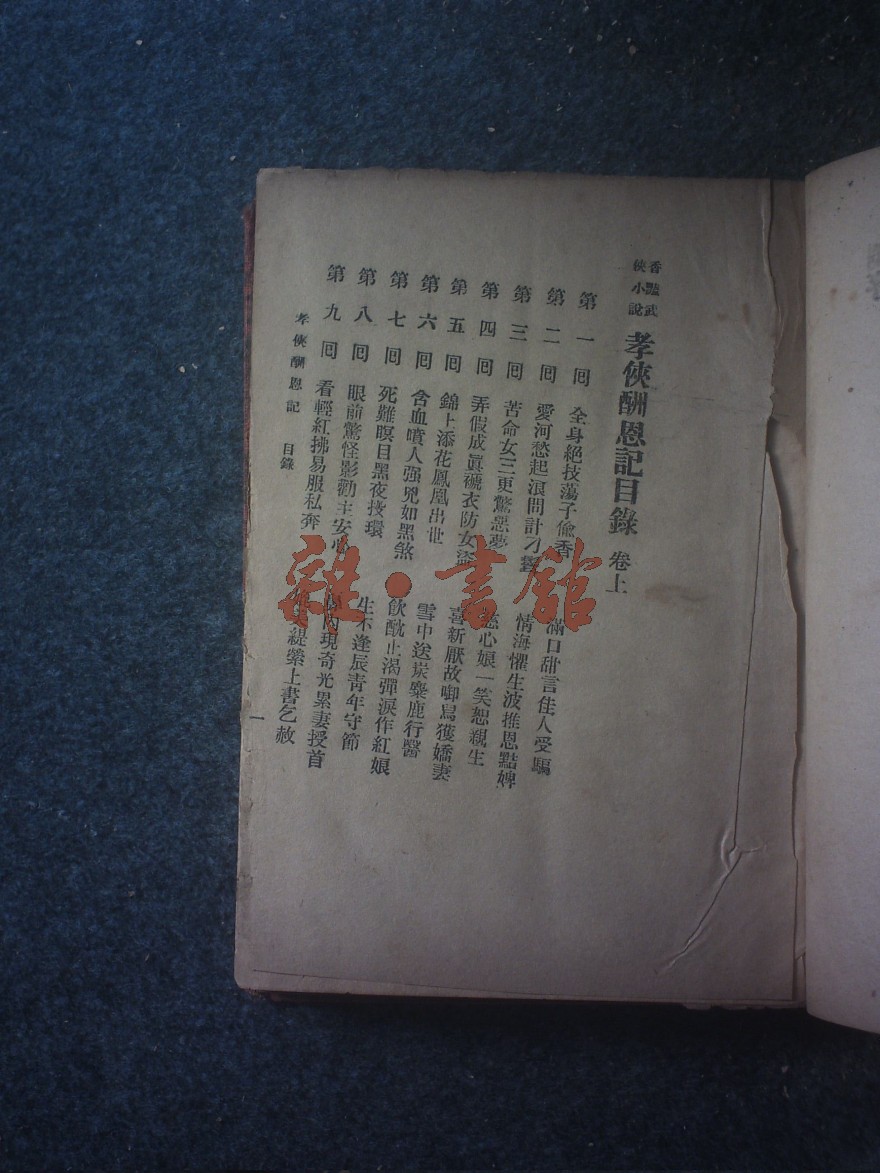 香豔武
俠小說
孝俠酬恩記目錄 卷上
第一回 全身絕技蕩子偸香 滿口甜言佳人受騙
第二回 愛河愁起浪問計刁 情海懼生波推恩黠婢
第三回 苦命女三更驚惡夢 慈心娘一笑恕親生
第四回 弄假成眞衣防女盜 喜新厭故啣鳥獲嬌妻
第五回 錦上添花鳳凰出世 雪中送炭麋鹿行醫
第六回 含血噴人强兇如黑煞 飲酖止渴彈淚作紅娘
第七回 死難瞑目黑夜投環 生不逢辰靑年守節
第八回 眼前驚怪影勸主安心 內現奇光累妻授首
第九回 看輕紅拂易服私奔 緹縈上書乞赦
孝俠酬恩記 目錄 一
雜·書館